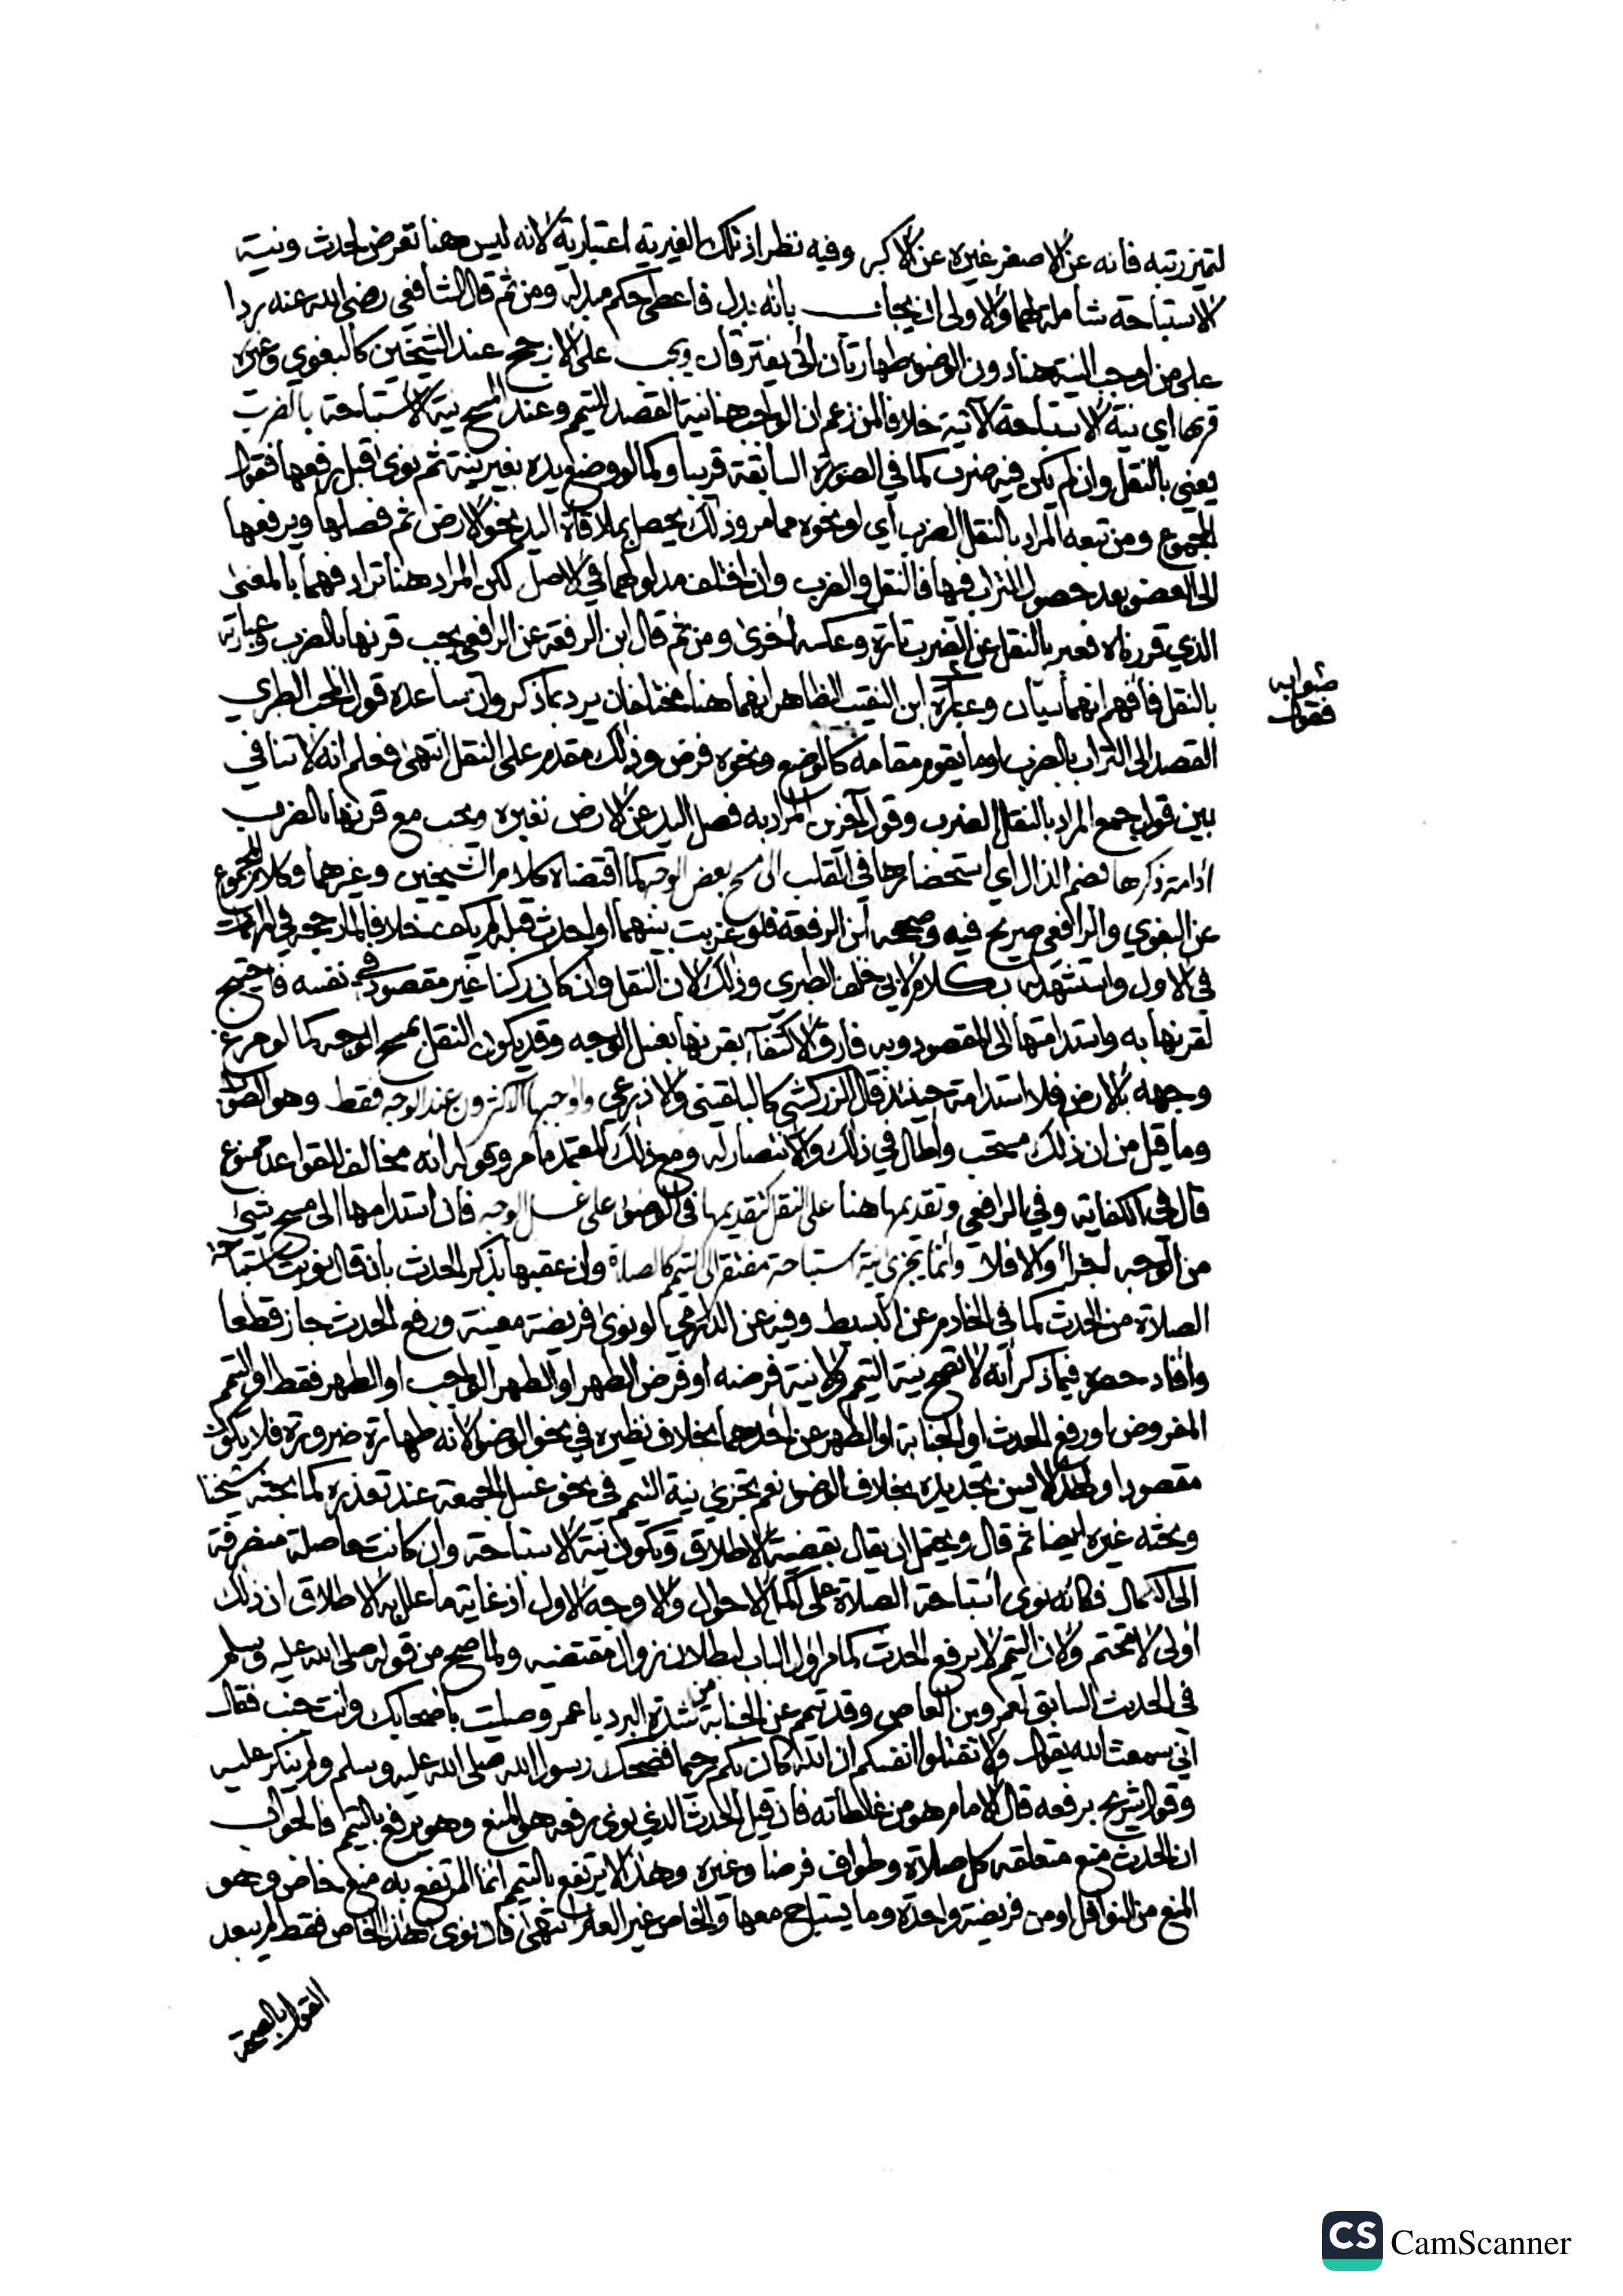 لتميز رتبه فانه عن الاصغر غيره عن الاكبر وفيه نظر اذ تلك الغيرية اعتبارية لانه ليس هنا تعرض لحدث ونية
الاستباحة شاملة لهما والاولى ان يجاب بانه بدل فاعطى حكم مبدله ومن ثم قال الشافعي رضي الله عنه ردا
على من اوجب النية هنا دون الوضو طهارتان انى يفترقان ويجب على الارجح عند الشيخين كالبغوي وغيره
قرنها اي نية الاستباحة الآتية خلافا لمن زعم ان الواجب هنا نية القصد للتيمم وعند المسح نية الاستباحة بالضرب
يعني بالنقل وان لم يكن فيه ضرب كما في الصورة السابقة قريبا وكما لو وضع يده بغير نية ثم نوى قبل رفعها فقول
المجموع ومن تبعه المراد بالنقل الضرب اي او نحوه مما مر وذلك يحصل بملاقاة اليد نحو الارض ثم فصلها ويرفعها
الى العضو بعد حصول التراب فيها فالنقل والضرب وان اختلف مدلولهما في الاصل لكن المراد هنا ترادفهما بالمعنى
الذي قررناه فعبر بالنقل عن الضرب تارة وعكسه اخرى ومن ثم قال ابن الرفعة عن الرافعي يجب قرنها بالضرب وعبارته
بالنقل فافهم انهما سيان وعبارة ابن النقيب الظاهر انهما هنا مختلفان يرد بما ذكر وان ساعده قول المحب الطبري
صوابه
فقول
القصد الى التراب بالضرب او ما يقوم مقامه كالوضع ونحوه فرض وذلك مقدم على النقل انتهى فعلم انه لا تنافي
بين قول جمع المراد بالنقل الضرب وقول آخرين المراد به فصل اليد عن الارض بغيره ويجب مع قرنها بالضرب
ادامة ذكرها بضم الذال اي استحضارها في القلب الى مسح بعض الوجه كما اقتضاه كلام الشيخين وغيرهما وكلام المجموع
عن البغوي والرافعي صريح فيه وصححه ابن الرفعة فلو عزبت بينهما او احدث قبله لم يكف خلافا لما رجحه في المهمات
في الاول واستشهد له بكلام لابي خلف الطبري وذلك لان النقل وان كان ركنا غير مقصود في نفسه فاحتيج
لقرنها به واستدامتها الى المقصود وبه فارق الاكتفآء بقرنها بغسل الوجه وقد يكون النقل بمسح الوجه كما لو مرغ
وجهه بالارض فلا استدامة حينئذ قال الزركشي كالبلقيني والاذرعي واوجبها الاكثرون عند الوجه فقط وهو الصواب
وما قيل من ان ذلك مستحب واطال في ذلك والانتصار له ومع ذلك المعتمد ما مر وقوله انه مخالف للقواعد ممنوع
قال في الكفاية وفي الرافعي وتقديمها هنا على النقل كتقديمها في الوضو على غسل الوجه فان استدامها الى مسح شيئ
من الوجه اجزا والا فلا وانما تجزي نية استباحة مفتقر الى التيمم كالصلاة وان عقبها بذكر الحدث بان قال نويت استباحة
الصلاة من الحدث كما في الخادم عن البسيط وفيه عن الدارمي لو نوى فريضة معينة ورفع الحدث جاز قطعا
وافاد حصره فيما ذكر انه لا تصح نية التيمم ولا نية فرضه او فرض الطهر او الطهر الواجب او الطهر فقط او التيمم
المفروض او رفع الحدث او الجنابة او الطهر عن احدهما بخلاف نظيره في نحو الوضو لانه طهارة ضرورة فلا يكون
مقصودا ولهذا لا يسن تجديده بخلاف الوضو نعم تجزئ نية التيمم في نحو غسل الجمعة عند تعذره كما بحثه شيخنا
وبحثه غيره ايضا ثم قال ويحتمل ان يقال بقضية الاطلاق وتكون نية الاستباحة وان كانت حاصلة منصرفة
الى الكمال فكانه نوى استباحة الصلاة على اكمل الاحوال والاوجه الاول اذ غاية ما علل به الاطلاق ان ذلك
اولى لا متحتم ولان التيمم لا يرفع الحدث كما مر اول الباب لبطلانه بزوال مقتضيه ولما صح من قوله صلى الله عليه وسلم
في الحديث السابق لعمرو بن العاص وقد تيمم عن الجنابة من شدة البرد يا عمرو صليت باصحابك وانت جنب فقال
اني سمعت الله يقول ولا تقتلوا انفسكم ان الله كان بكم رحيما فضحك رسول الله صلى الله عليه وسلم ولم ينكر عليه
وقول سريج برفعه قال الامام هو من غلطاته فان قيل الحدث الذي نوى رفعه هو المنع وهو يرفع بالتيمم فالجواب
ان الحدث منع متعلقه كل صلاة وطواف فرضا وغيره وهذا لا يرتفع بالتيمم انما المرتفع به منع خاص وهو
المنع من النوافل او من فريضة واحدة وما يستباح معها والخاص غير العام انتهى فان نوى هذا الخاص فقط لم يبعد
القول بالصحة
CS CamScanner